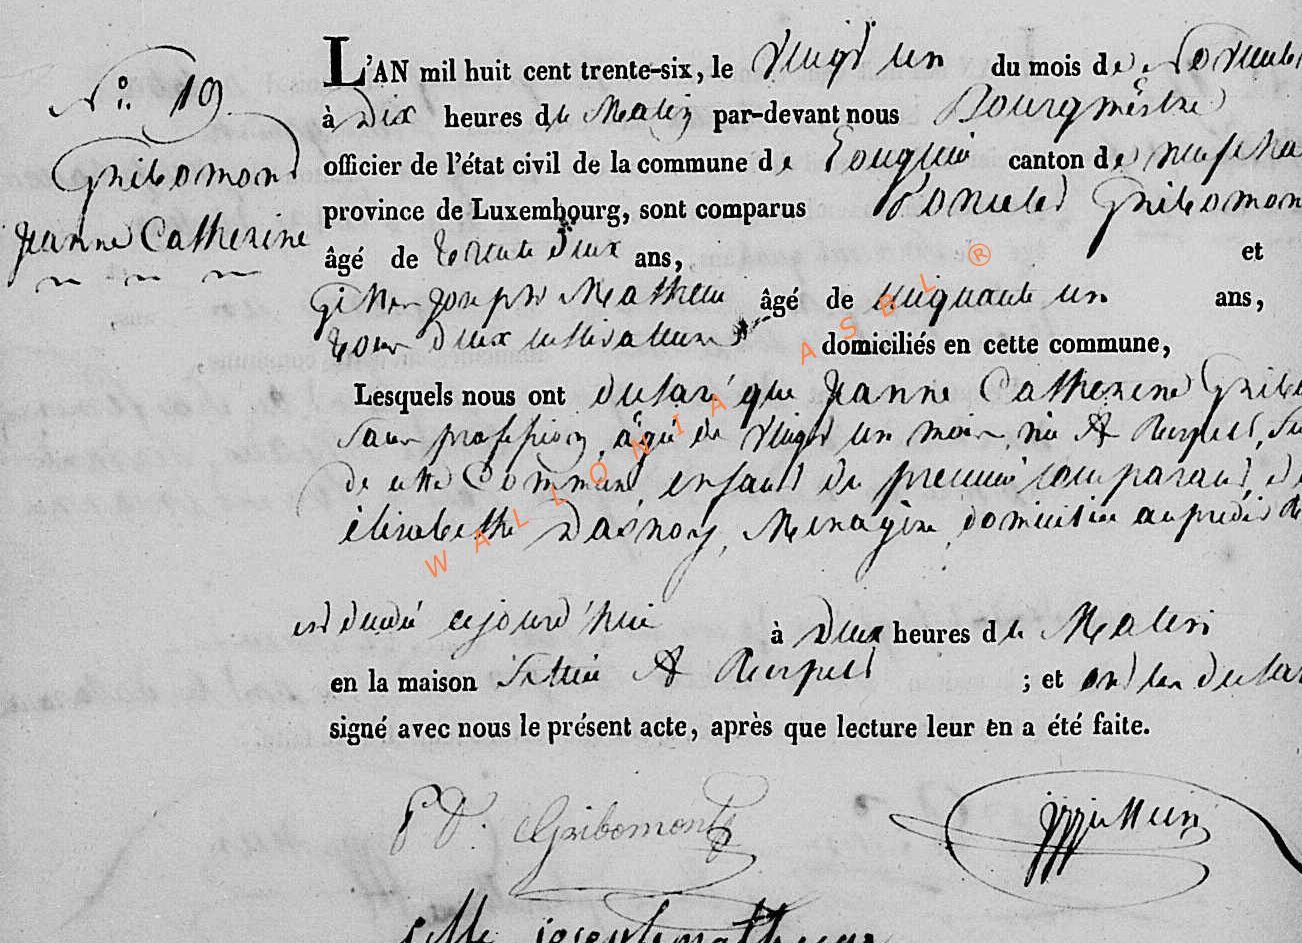 N.o 19.
Gribomont
Jeanne Catherine
L'AN mil huit cent trente-six, le Vingt un du mois de Novemb
à Dix heures du Matin par-devant nous Bourgmêstre
officier de l'état civil de la commune de Longlier canton de Neufcha
province de Luxembourg, sont comparus Gribomon
âgé de trente deux ans, et
Joseph Matheu âgé de cinquante un ans,
tous deux cultivateurs domiciliés en cette commune,
Lesquels nous ont declaré que Jeanne Catherine Gribo
sans profession, âgé de Vingt un mois, née A
de cette Commune, enfant du premier comparant, de
élisabethe Dasnoy, Menagère, domiciliée
est decedé cejourd'hui à Deux heures du Matin
en la maison Sittuée A ; et ont les declar
signé avec nous le présent acte, après que lecture leur en a été faite.
Gribomont
joseph mathieux
WALLONIA ASBL ®